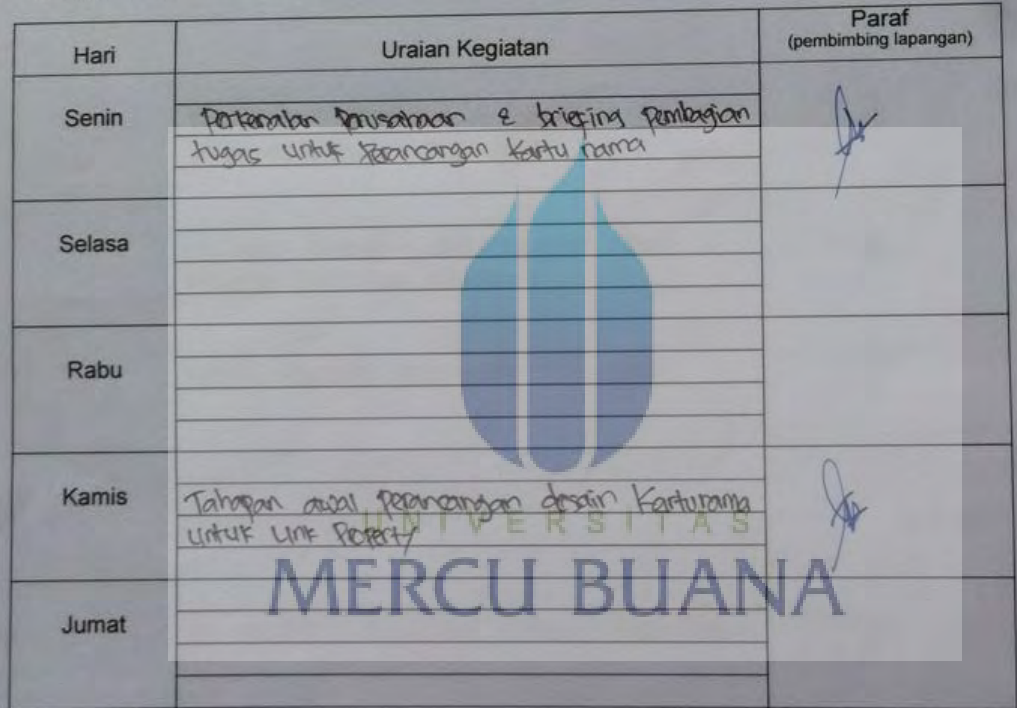 Hari Uraian Kegiatan Paraf
(pembimbing lapangan)
Senin
Perkenalan Perusahaan & briefing pembagian
tugas untuk Perancangan Kartu nama
Selasa
Rabu
Kamis
Tahapan awal Perancangan desain Kartunama
untuk Link Property
UNIVERSITAS
MERCU BUANA
Jumat